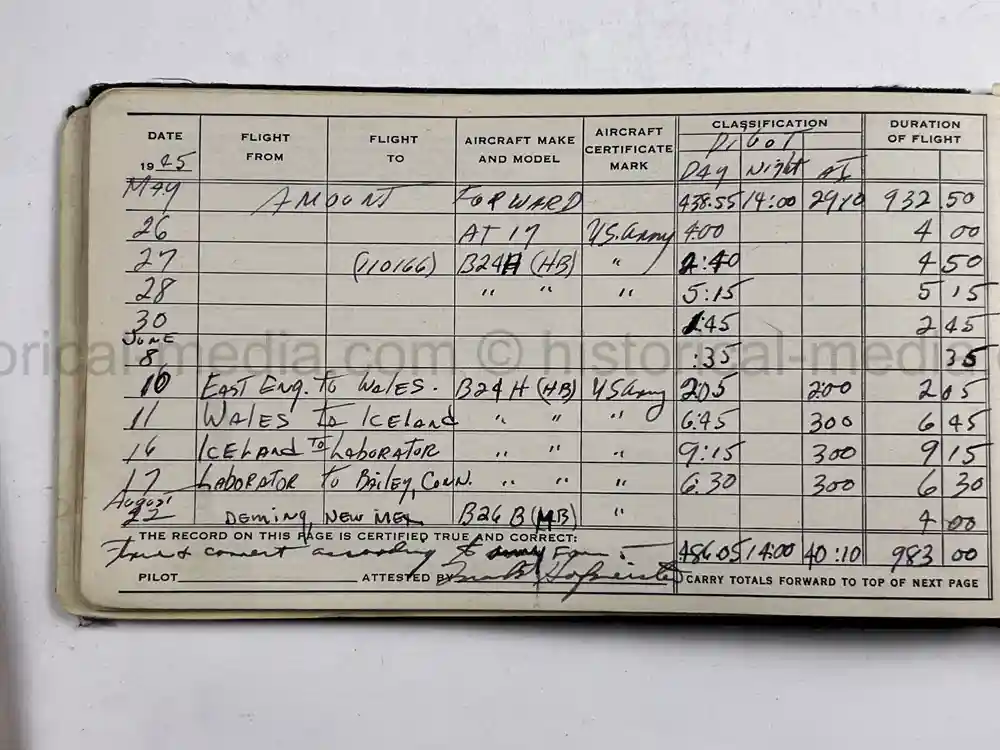 DATE FLIGHT FROM FLIGHT TO AIRCRAFT MAKE AND MODEL AIRCRAFT CERTIFICATE MARK CLASSIFICATION DURATION OF FLIGHT
1945 Day Night AI
MAY AMOUNT FORWARD 438.55 14:00 29:10 932 50
26 AT 17 U.S. Army 4:00 4 00
27 (110166) B24H (HB) " 2:40 4 50
28 " " " 5:15 5 15
30 1:45 2 45
JUNE
8 :35 35
10 EAST ENG. To WALES. B24 H (HB) US Army 2:05 2:00 2 05
11 WALES To ICELAND " " " 6:45 300 6 45
16 ICELAND TO LABORATOR " " " 9:15 300 9 15
17 LABORATOR to BAILEY, CONN. " " " 6:30 300 6 30
August
22 DEMING, NEW MEX B26 B (MB) " 4 00
THE RECORD ON THIS PAGE IS CERTIFIED TRUE AND CORRECT:
True & correct according to Form 5 486.05 14:00 40:10 983 00
PILOT ATTESTED BY CARRY TOTALS FORWARD TO TOP OF NEXT PAGE
orical-media.com © historical-medi